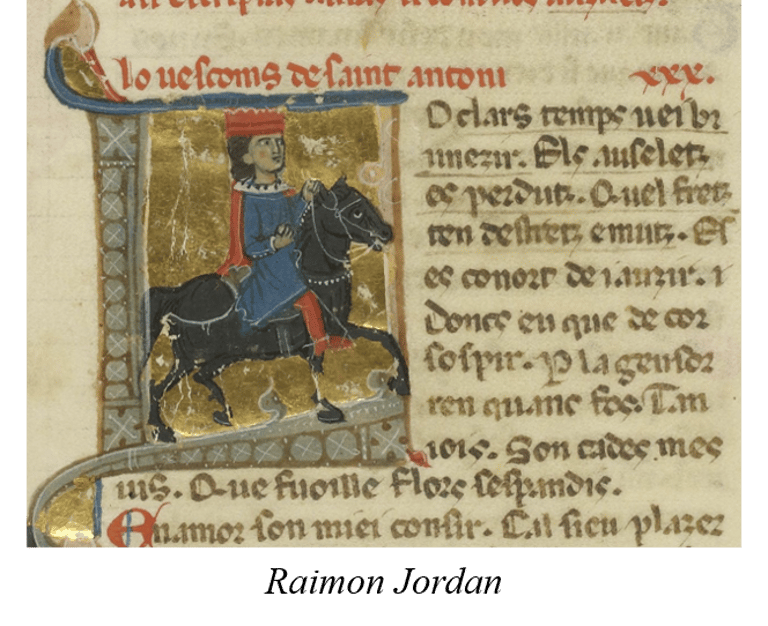 lo uescoms de saint antoni xxx.
O clars temps uei br
unezir. Els auseletz
es perdutz. Q.uel fretz
ten destretz e mutz. El
es conort de iauzir. i
Doncs eu que de cor
sospir. p la gensor
ren quanc fos. Tan
iois. Son cades mes
uis. Q.ue fuoille flors sespandis.
Enamor son miei consir. Cal sieu plazer
Raimon Jordan